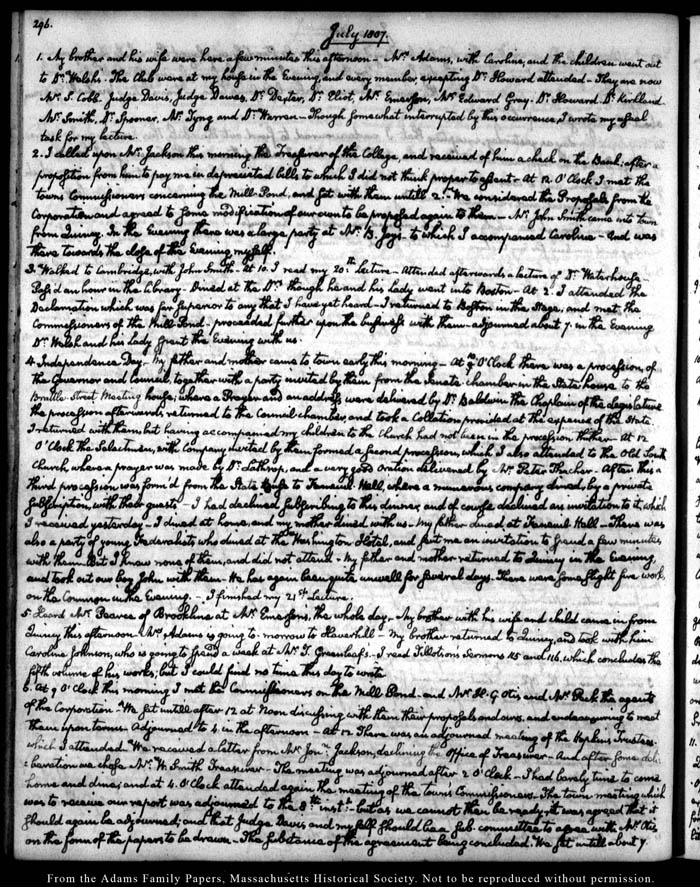 296.
July 1807.
1. My brother and his wife were here a few minutes this afternoon – Mrs. Adams, with Caroline, and the children went out
to Dr. Welsh's. The Club were at my house in the Evening, and every member, excepting Dr. Howard attended – They are now
Mr. S. Cobb. Judge Davis, Judge Dawes, Dr. Dexter, Dr. Eliot, Mr. Emerson, Mr. Edward Gray. Dr. Howard. Dr. Kirkland
Mr. Smith, Dr. Spooner, Mr. Tyng and Dr. Warren – Though somewhat interrupted by this occurrence, I wrote my usual
task for my lecture.
2. I called upon Mr. Jackson this morning the Treasurer of the College, and received of him a check on the Bank; after a
proposition from him to pay me in depreciated bills, to which I did not think proper to assent – At 12 O'Clock I met the
town Commissioners concerning the Mill-Pond, and sat with them untill 2. We considered the Proposals from the
Corporation and agreed to some modification of our own to be proposed again to them – Mr. John Smith came into town
from Quincy. In the Evening there was a large party at Mr. B. Joy's to which I accompanied Caroline – And was
there towards the close of the Evening myself.
3. Walked to Cambridge, with John Smith – At 10. I read my 20th Lecture – Attended afterwards a lecture of Dr. Waterhouse –
Pass'd an hour in the library – Dined at the Dr.s though he and his lady went into Boston – At 2. I attended the
Declamation which was far superior to any that I have yet heard – I returned to Boston in the Stage, and met the
Commissioners of the Mill Pond – proceeded further upon the business with them – adjourned about 7. in the Evening
Dr. Welsh and his Lady spent the Evening with us.
4. Independence Day – My father and mother came to town early this morning – At O'Clock there was a procession, of
the Governor and Council, together with a party invited by them from the Senate chamber in the State house to the
Brattle-Street Meeting house; where a Prayer and an address were delivered by Dr. Baldwin the Chaplain of the Legislature
the procession afterwards returned to the Council chamber, and took a Collation provided at the expense of the State.
I returned with them but having accompanied my children to the Church had not been in the procession thither – At 12
O'Clock the Selectmen, with company invited by them formed a second procession, which I also attended to the Old South
Church, where a prayer was made by Dr. Lathrop, and a very good oration delivered by Mr. Peter Thacher – After this a
third procession was form'd from the State house to Faneuil Hall, where a numerous company dined, by a private
subscription, with their guests – I had declined subscribing to this dinner, and of course declined an invitation to it, which
I received yesterday – I dined at home, and my mother dined with us – My father dined at Faneuil Hall – There was
also a party of young Federalists who dined at the Washington Hotel, and sent me an invitation to spend a few minutes
with them. But I knew none of them, and did not attend – My father and mother returned to Quincy in the Evening,
and took out our boy John with them – He has again been quite unwell for several days. There were some slight fire works
on the Common in the Evening. – I finished my 21st Lecture.
5. Heard Mr. Pearce of Brookline at Mr. Emerson's, the whole day – My brother with his wife and child came in from
Quincy this afternoon – Mrs. Adams is going to-morrow to Haverhill – My brother returned to Quincy, and took with him
Caroline Johnson, who is going to spend a week at Mr. T. Greenleaf's – I read Tillotson's Sermons 115 and 116, which concludes the
fifth volume of his works, but I could find no time this day to write
6. At 9 O'Clock this morning I met the Commissioners on the Mill Pond – and Mr. H. G. Otis and Mr. Peck the agents
of the Corporation – We sat untill after 12 at Noon discussing with them their proposals and ours, and endeavouring to meet
them upon terms – Adjourned to 4 in the afternoon – At 12 There was an adjourned meeting of the Hopkins Trustees –
which I attended. We received a letter from Mr. Jonn. Jackson, declining the Office of Treasurer – And after some deli-
beration we chose Mr. W. Smith Treasurer – The meeting was adjourned after 2 O'Clock – I had barely time to come
home and dine; and at 4. O'Clock attended again the meeting of the Town Commissioners. The town meeting which
was to receive our report was adjourned to the 8th inst. – but as we cannot then be ready, it was agreed that it
should again be adjourned; and that Judge Davis and myself should be a sub-committee to agree with Mr. Otis
on the form of the papers to be drawn – The substance of the agreement being concluded. We sat until about 7
From the Adams Family Papers, Massachusetts Historical Society. Not to be reproduced without permission.